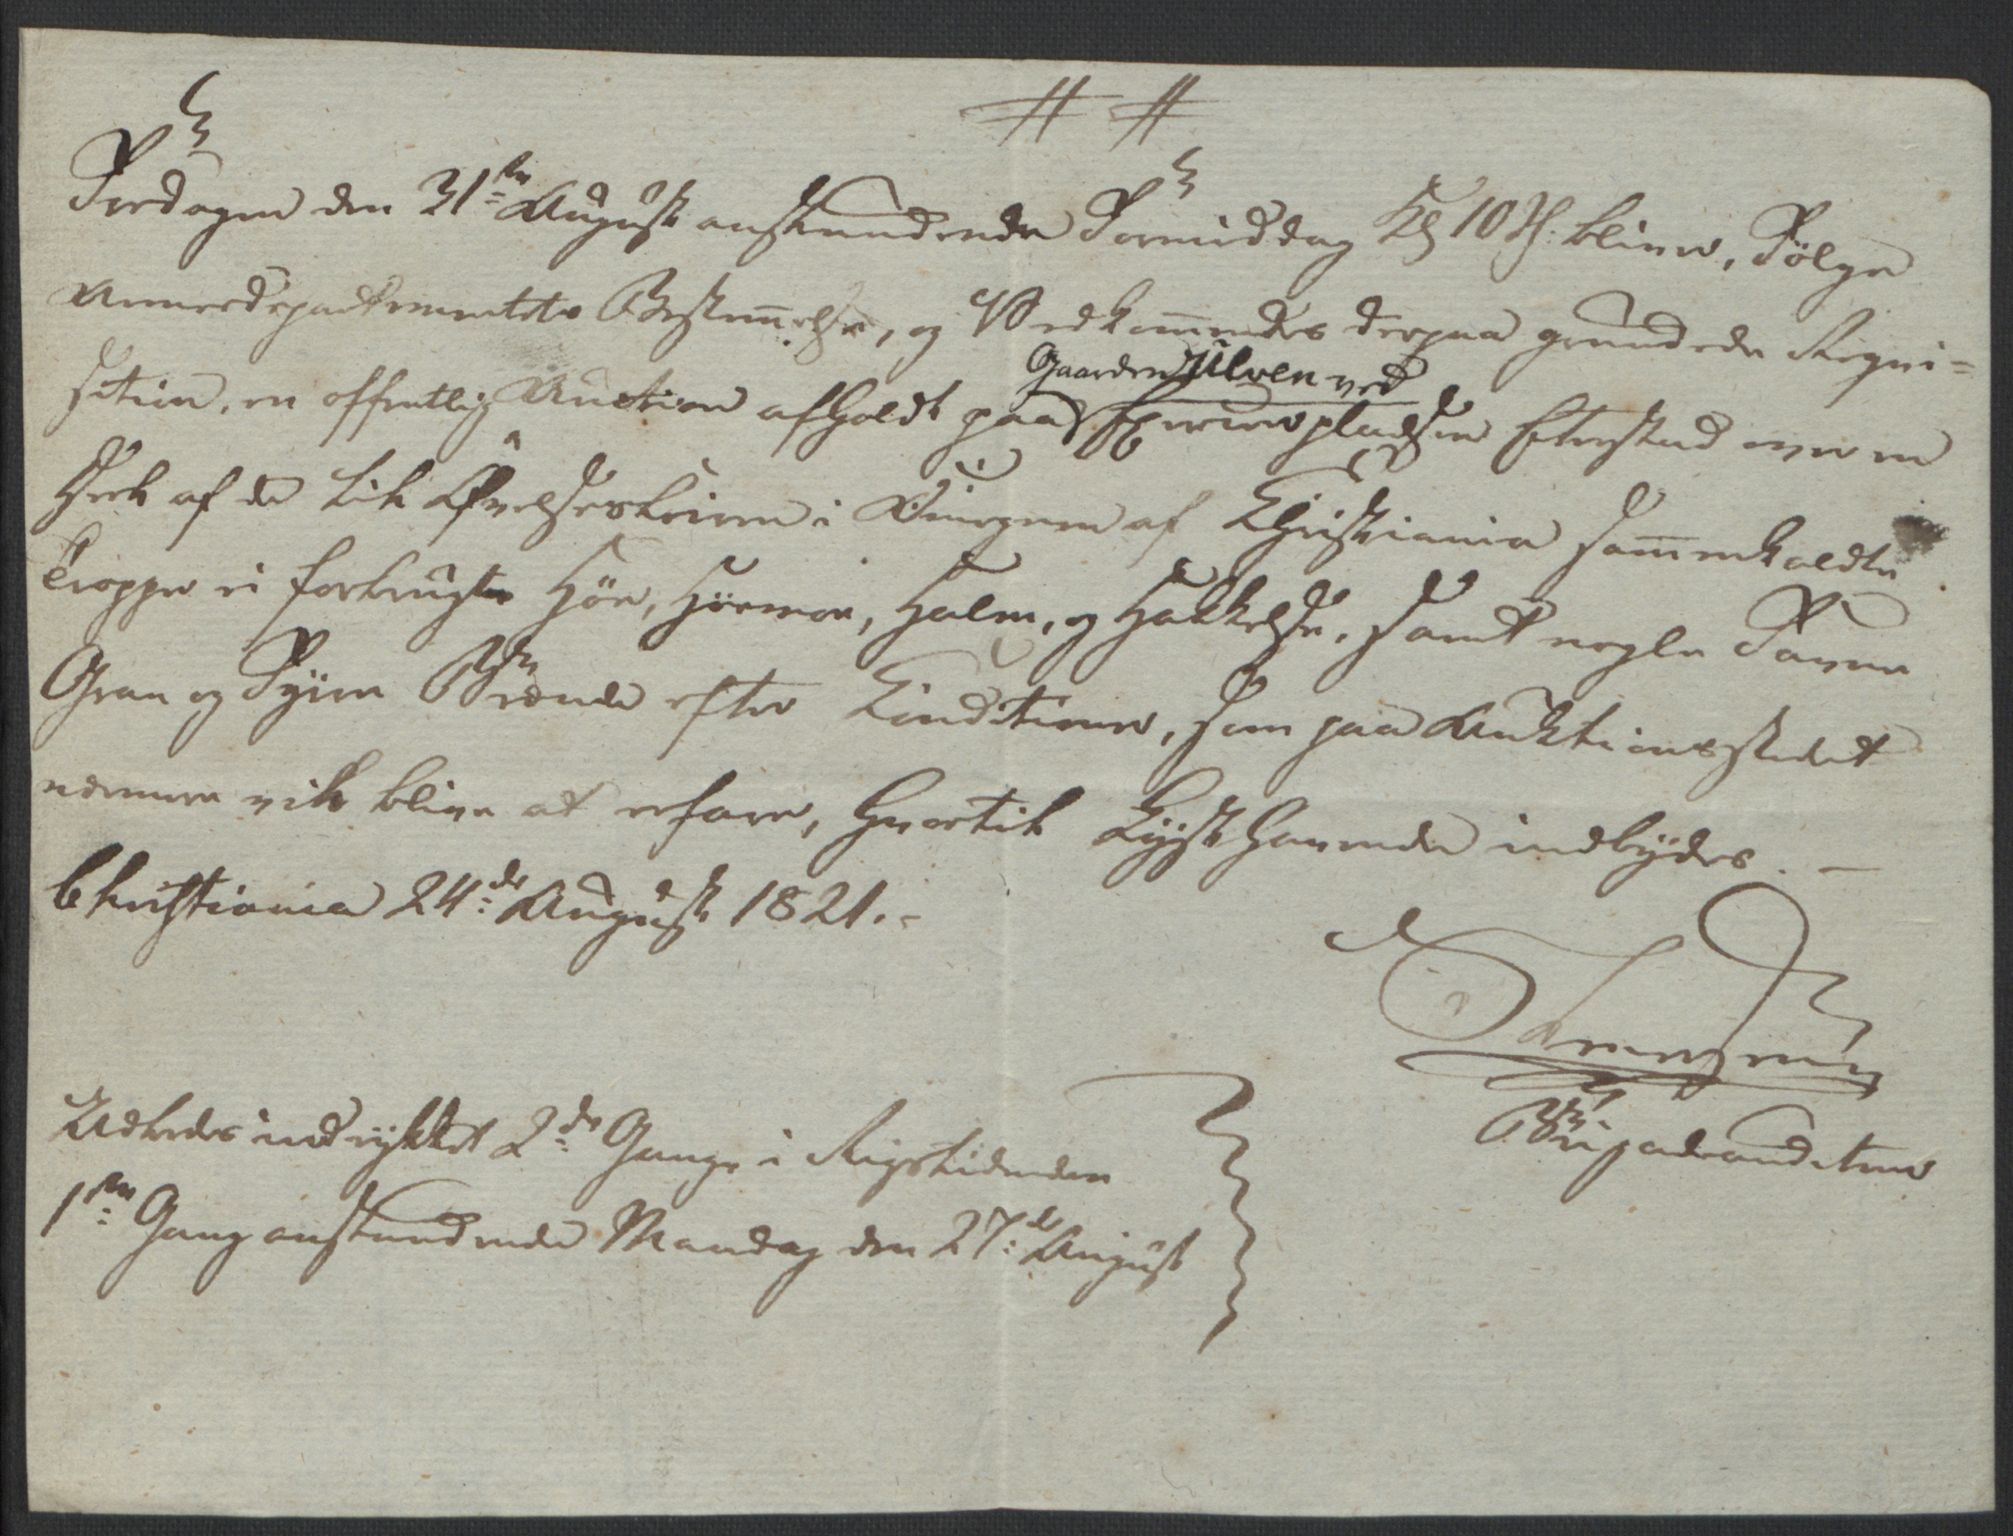 Fredagen den 31te August anstundende Formiddag Kl 10 Sl: bliver, Følge
Armeedepartementets Bestem̅else, og Vedkom̅endes derpaa grundede Reqvi=
sition, en offentlig Auction afholdt paa Gaarden Ulven ved Exerceerpladsen Etterstad over en
Deel af de til Øvelsesleiren i Omegnen af Christiania sam̅enkaldte
Tropper ei forbrugte Høe, Høemøe, Halm, og Hakkelse, samt nogle Favne
Gran og Fyrre Brænde efter Conditioner, som paa Auktionsstedet
nærmere vil blive at erfare, hvortil Lysthavende indbydes. —
Christiania 24de August 1821.-
Brigadeauditeur
Udbedes indrykket 2de Gange i Rigstidenden
1ste Gang anstundende Mandag den 27de August